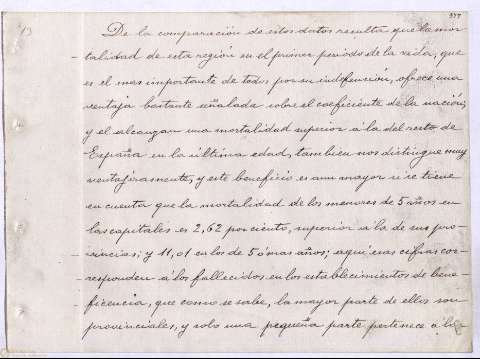 13
De la comparación de estos datos resulta que la mor-
talidad de esta región en el primer periodo de la vida, que
es el mas importante de todos por su indefension, ofrece una
ventaja bastante señalada sobre el coeficiente de la nación,
y el alcanzar una mortalidad superior á la del resto de
España en la última edad, tambien nos distingue muy
ventajosamente, y este beneficio es aun mayor si se tiene
en cuenta que la mortalidad de los menores de 5 años en
las capitales es 2,62 por ciento, superior á la de sus pro-
vincias; y 11,01 en los de 5 ó mas años; aqui esas cifras cor-
responden á los fallecidos en los establecimientos de bene-
ficencia, que como se sabe, la mayor parte de ellos son
provinciales, y solo una pequeña parte pertenece á la